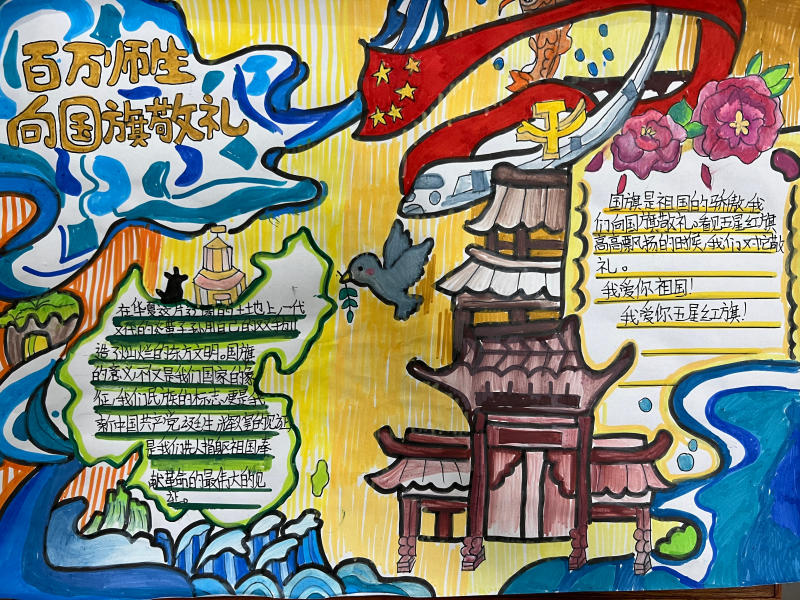 百万师生
向国旗敬礼
在华夏这片 的土地上,一代
又代的炎黄子孙用自己的双手创
造了灿烂的东方文明。国旗
的意义不仅是我们国家的象
征,我们民族的标志,更是我
新中国共产党 生 辉煌的见证
是我们先人换取祖国奉
献革命的最伟大的见
证。
国旗是祖国的骄傲,我
们向国旗敬礼。看见五星红旗
高高飘扬的时候,我们 敬
礼。
我爱你祖国!
我爱你五星红旗!